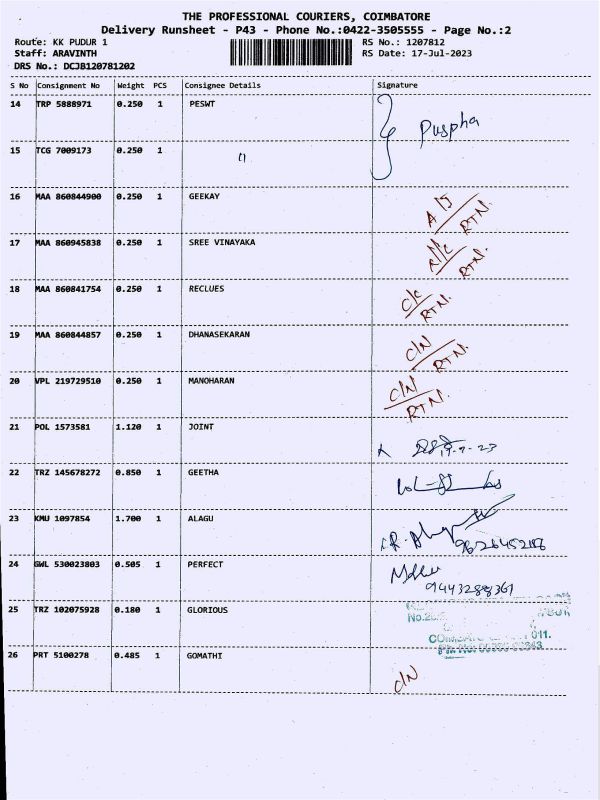 THE PROFESSIONAL COURIERS, COIMBATORE
Delivery Runsheet - P43 - Phone No.:0422-3505555 - Page No.:2
Route: KK PUDUR 1 RS No.: 1207812
Staff: ARAVINTH RS Date: 17-Jul-2023
DRS No.: DCJB120781202
S No Consignment No Weight PCS Consignee Details Signature
14 TRP 5888971 0.250 1 PESWT Puspha
15 TCG 7009173 0.250 1 "
16 MAA 860844900 0.250 1 GEEKAY RTN.
17 MAA 860945838 0.250 1 SREE VINAYAKA RTN.
18 MAA 860841754 0.250 1 RECLUES C/C RTN.
19 MAA 860844857 0.250 1 DHANASEKARAN C/N RTN.
20 VPL 219729510 0.250 1 MANOHARAN C/N RTN.
21 POL 1573581 1.120 1 JOINT
22 TRZ 145678272 0.850 1 GEETHA
23 KMU 1097854 1.700 1 ALAGU
24 GWL 530023803 0.505 1 PERFECT 9443288361
25 TRZ 102075928 0.180 1 GLORIOUS
26 PRT 5100278 0.485 1 GOMATHI C/N